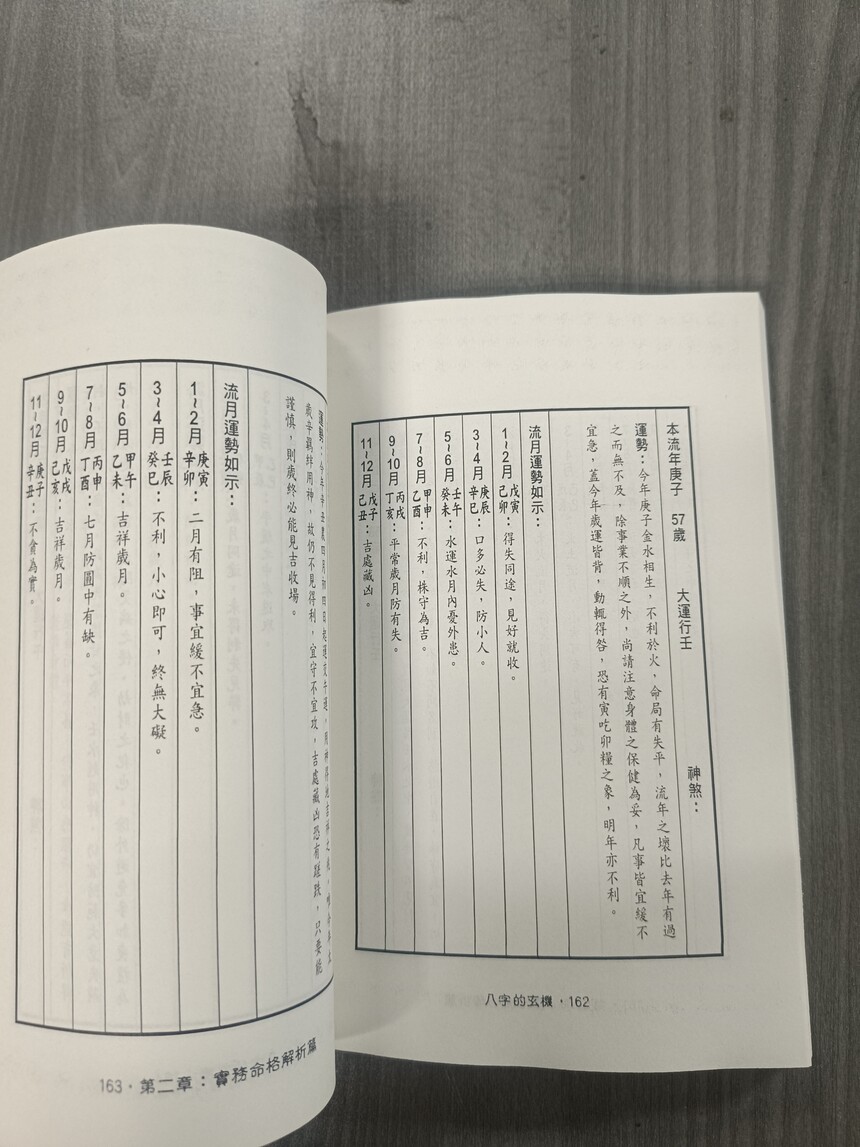 本流年庚子 57歲 大運行壬 神煞：
運勢：今年庚子金水相生，不利於火，命局有失平，流年之壞比去年有過
之而無不及，除事業不順之外，尚請注意身體之保健為妥，凡事皆宜緩不
宜急，蓋今年歲運皆背，動輒得咎，恐有寅吃卯糧之象，明年亦不利。
流月運勢如示：
1~2月 戊寅 己卯：得失同途，見好就收。
3~4月 庚辰 辛巳：口多必失，防小人。
5~6月 壬午 癸未：水運水月內憂外患。
7~8月 甲申 乙酉：不利，株守為吉。
9~10月 丙戌 丁亥：平常歲月防有失。
11~12月 戊子 己丑：吉處藏凶。
八字的玄機·162
運勢：今年辛丑農四月初四日起運
歲辛羈絆用神，故仍不見得利，宜守不宜攻，吉處藏凶恐有蹉跌，只要能
謹慎，則歲終必能見吉收場。
流月運勢如示：
1~2月 庚寅 辛卯：二月有阻，事宜緩不宜急。
3~4月 壬辰 癸巳：不利，小心即可，終無大礙。
5~6月 甲午 乙未：吉祥歲月。
7~8月 丙申 丁酉：七月防圓中有缺。
9~10月 戊戌 己亥：吉祥歲月。
11~12月 庚子 辛丑：不貪為寶。
163·第二章：實務命格解析篇